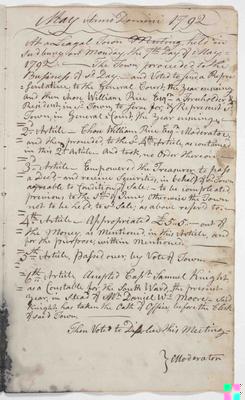 May Anno Domini 1792
At a Legal Town Meeting held in
Sudbury East Monday the 7th Day of May
1792. The Town proceeded to the
Business of Sd Day and Voted to send a Repre
sentative to the General Court, the year ensuing
and then chose William Rice Esqr a freeholder &
Resident in Sd Town, to
Town, in General Court the year ensuing
2d Article Chose William Rice Esqr Moderator
and then proceeded to the 2d Article, as contained
in the 2d Article And took no Order thereon
3d Article Empowered the Treasurer to pass
a Deed and receive Securities, in behalf of the Town
agreeable to Conditions of Sale to be compleated
previous to the 1st of June, otherwise the Town
not to be held to Sd Sale, as above refered to.
4th Article Appropriated £5-5 out
of the Money, as mentioned in this Article, and
for the purpose, within mentioned
5th Article, passed over, by Vote of Town
6th Article Accepted Capt Samuel Knight
as a Constable for the South Ward, the present
year, in Stead of Mr Daniel Wm Moore Said
Knight has taken the Oath of Office before the Clerk
of said Town
Then Voted to Dissolve this Meeting
Moderator